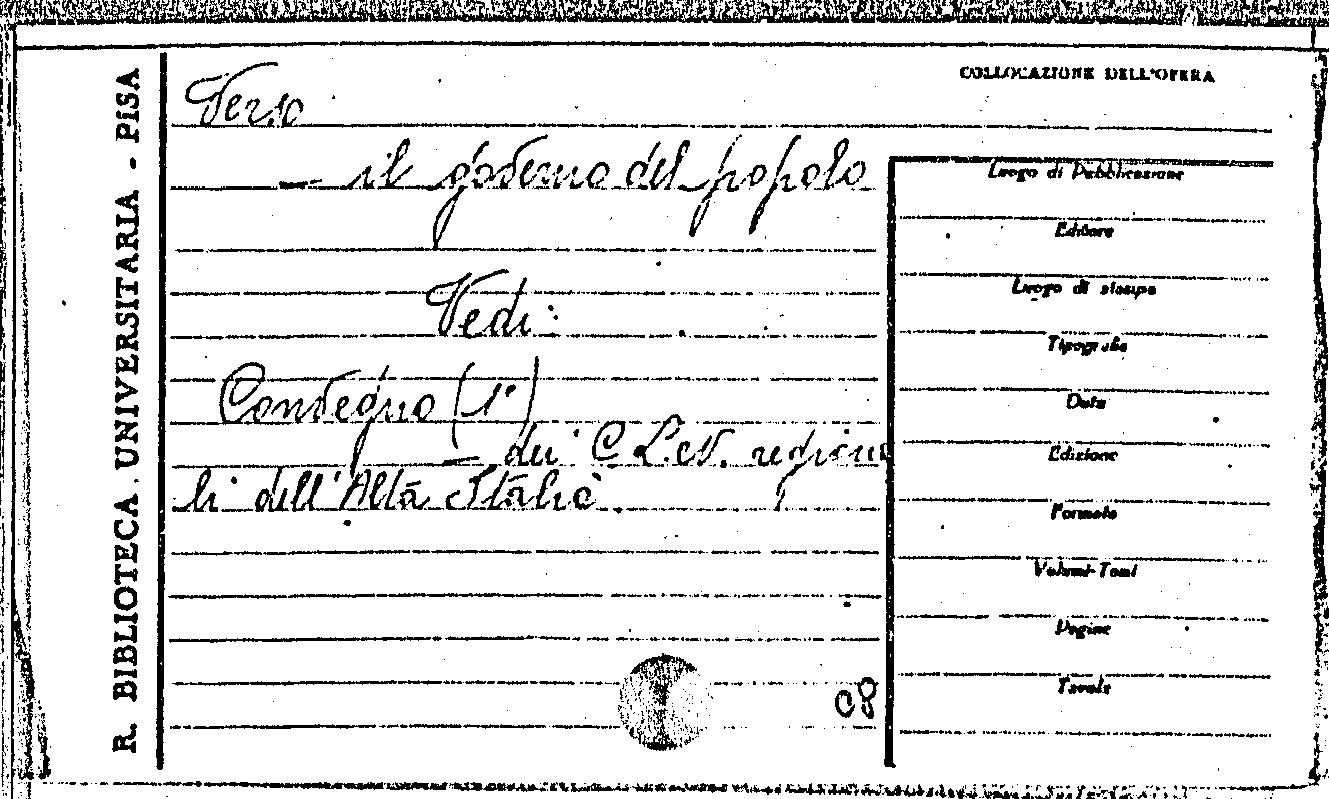 R. BIBLIOTECA UNIVERSITARIA - PISA
COLLOCAZIONE DELL'OPERA
Verso
- il governo del popolo
Vedi:
Convegno (1°)
- dei C.L.N. regiona
li dell'Alta Italia
C8
Luogo di Pubblicazione
Editore
Luogo di stampa
Tipografia
Data
Edizione
Formato
Volumi-Tomi
Pagine
Tavole